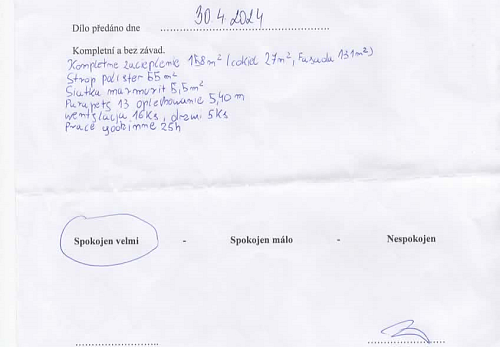 Dílo předáno dne 30.4.2024
Kompletní a bez závad.
Kompletne zaceplenie 158m² (cokel 27m², fasada 131m²)
Strop polister 65m²
Siatka marmurit 5,5m²
Parapety 13 oplechowanie 5,40m
wentylacja 16Ks, 5Ks
Prace godzinne 25h
Spokojen velmi - Spokojen málo - Nespokojen